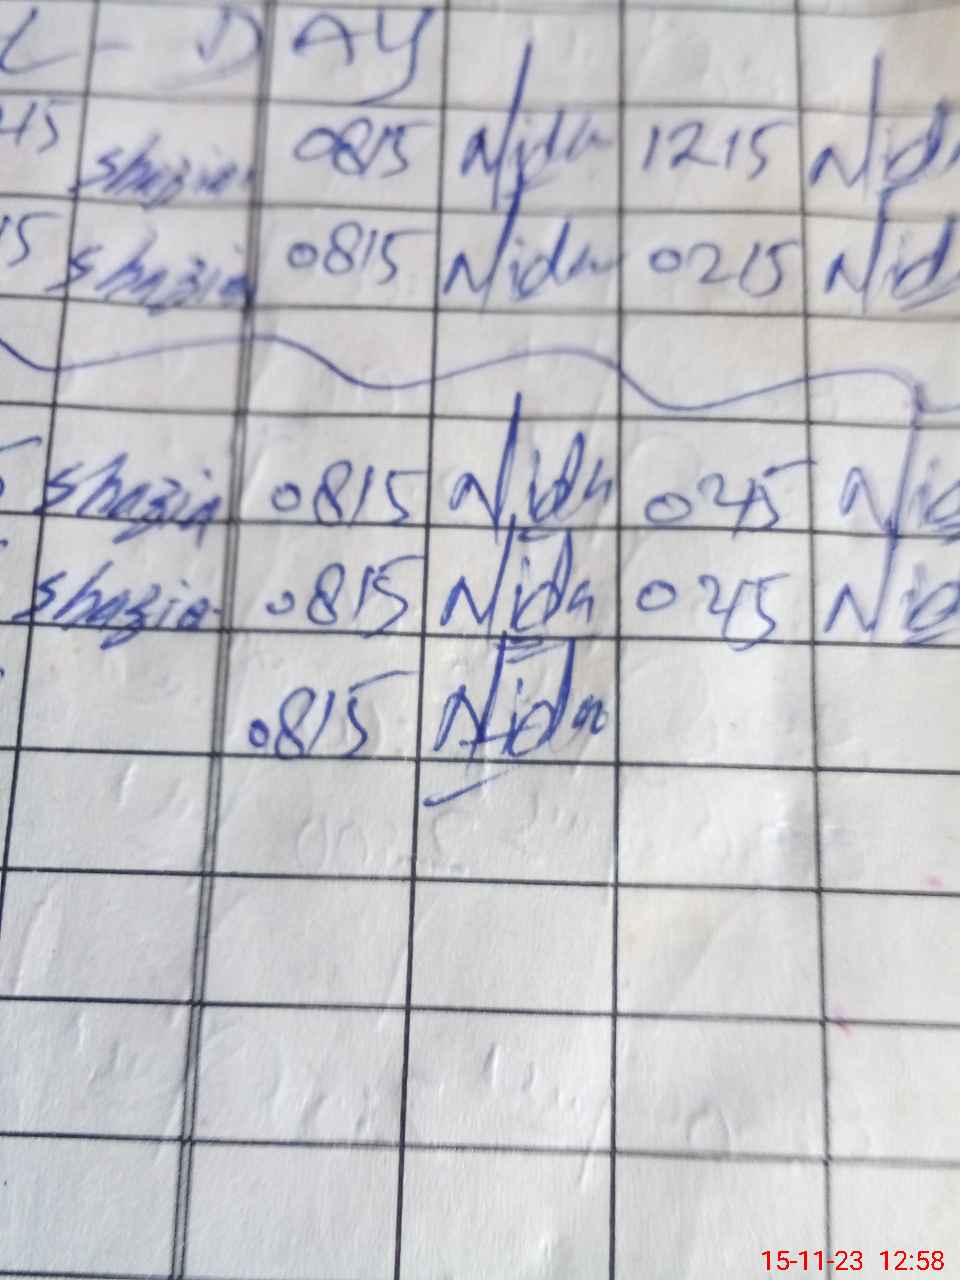 L - DAY
45 shazia 0815 Nida 1215 Nid
15 shazia 0815 Nida 0215 Nid
shazia 0815 Nida 0245 Nid
shazia 0815 Nida 0245 Nid
0815 Nida
15-11-23 12:58